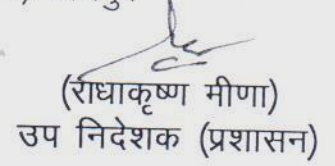 (राधाकृष्ण मीणा)
उप निदेशक (प्रशासन)